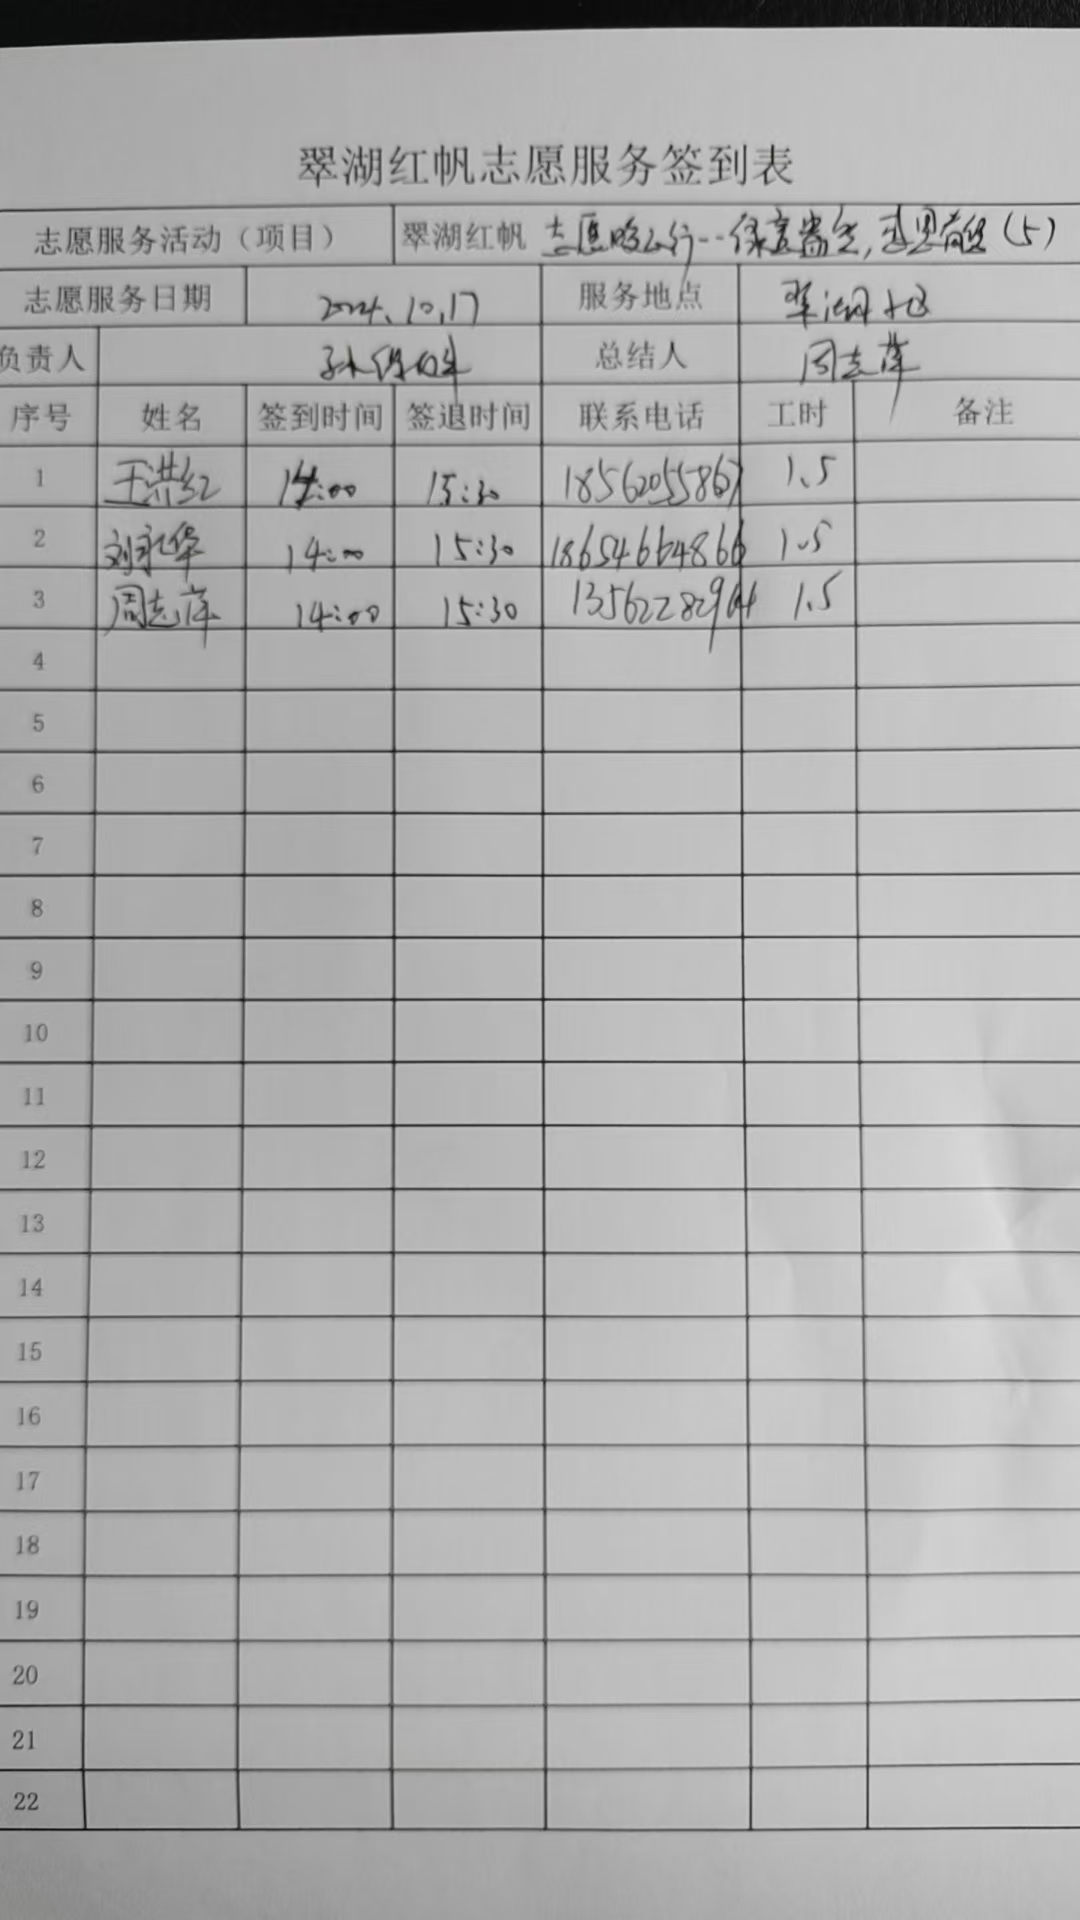 翠湖红帆志愿服务签到表
志愿服务活动（项目） 翠湖红帆 志愿 (5)
志愿服务日期 2024.10.17 服务地点 翠湖社区
负责人 总结人 周志萍
序号 姓名 签到时间 签退时间 联系电话 工时 备注
1 王洪红 14:00 15:30 18562055867 1.5
2 刘永华 14:00 15:30 18654664866 1.5
3 周志萍 14:00 15:30 13562282964 1.5
4
5
6
7
8
9
10
11
12
13
14
15
16
17
18
19
20
21
22